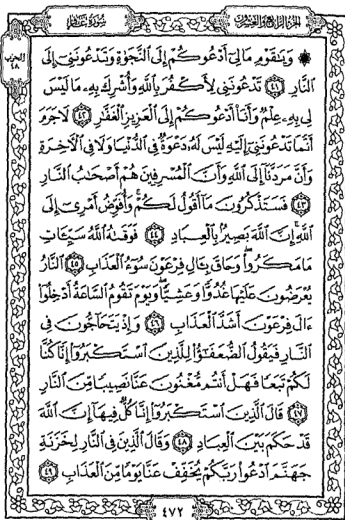 الجزء الرابع والعشرون
سورة غافر
الحزب
٤٨
۞ وَيَٰقَوْمِ مَا لِىٓ أَدْعُوكُمْ إِلَى ٱلنَّجَوٰةِ وَتَدْعُونَنِىٓ إِلَى
ٱلنَّارِ ٤١ تَدْعُونَنِى لِأَكْفُرَ بِٱللَّهِ وَأُشْرِكَ بِهِۦ مَا لَيْسَ
لِى بِهِۦ عِلْمٌ وَأَنَا۠ أَدْعُوكُمْ إِلَى ٱلْعَزِيزِ ٱلْغَفَّٰرِ ٤٢ لَا جَرَمَ
أَنَّمَا تَدْعُونَنِىٓ إِلَيْهِ لَيْسَ لَهُۥ دَعْوَةٌ فِى ٱلدُّنْيَا وَلَا فِى ٱلْءَاخِرَةِ
وَأَنَّ مَرَدَّنَآ إِلَى ٱللَّهِ وَأَنَّ ٱلْمُسْرِفِينَ هُمْ أَصْحَٰبُ ٱلنَّارِ
٤٣ فَسَتَذْكُرُونَ مَآ أَقُولُ لَكُمْ وَأُفَوِّضُ أَمْرِىٓ إِلَى
ٱللَّهِ إِنَّ ٱللَّهَ بَصِيرٌۢ بِٱلْعِبَادِ ٤٤ فَوَقَىٰهُ ٱللَّهُ سَيِّـَٔاتِ
مَا مَكَرُوا۟ وَحَاقَ بِـَٔالِ فِرْعَوْنَ سُوٓءُ ٱلْعَذَابِ ٤٥ ٱلنَّارُ
يُعْرَضُونَ عَلَيْهَا غُدُوًّا وَعَشِيًّا وَيَوْمَ تَقُومُ ٱلسَّاعَةُ أَدْخِلُوٓا۟
ءَالَ فِرْعَوْنَ أَشَدَّ ٱلْعَذَابِ ٤٦ وَإِذْ يَتَحَآجُّونَ فِى
ٱلنَّارِ فَيَقُولُ ٱلضُّعَفَٰٓؤُا۟ لِلَّذِينَ ٱسْتَكْبَرُوٓا۟ إِنَّا كُنَّا
لَكُمْ تَبَعًا فَهَلْ أَنتُم مُّغْنُونَ عَنَّا نَصِيبًا مِّنَ ٱلنَّارِ
٤٧ قَالَ ٱلَّذِينَ ٱسْتَكْبَرُوٓا۟ إِنَّا كُلٌّ فِيهَآ إِنَّ ٱللَّهَ
قَدْ حَكَمَ بَيْنَ ٱلْعِبَادِ ٤٨ وَقَالَ ٱلَّذِينَ فِى ٱلنَّارِ لِخَزَنَةِ
جَهَنَّمَ ٱدْعُوا۟ رَبَّكُمْ يُخَفِّفْ عَنَّا يَوْمًا مِّنَ ٱلْعَذَابِ ٤٩
٤٧٢